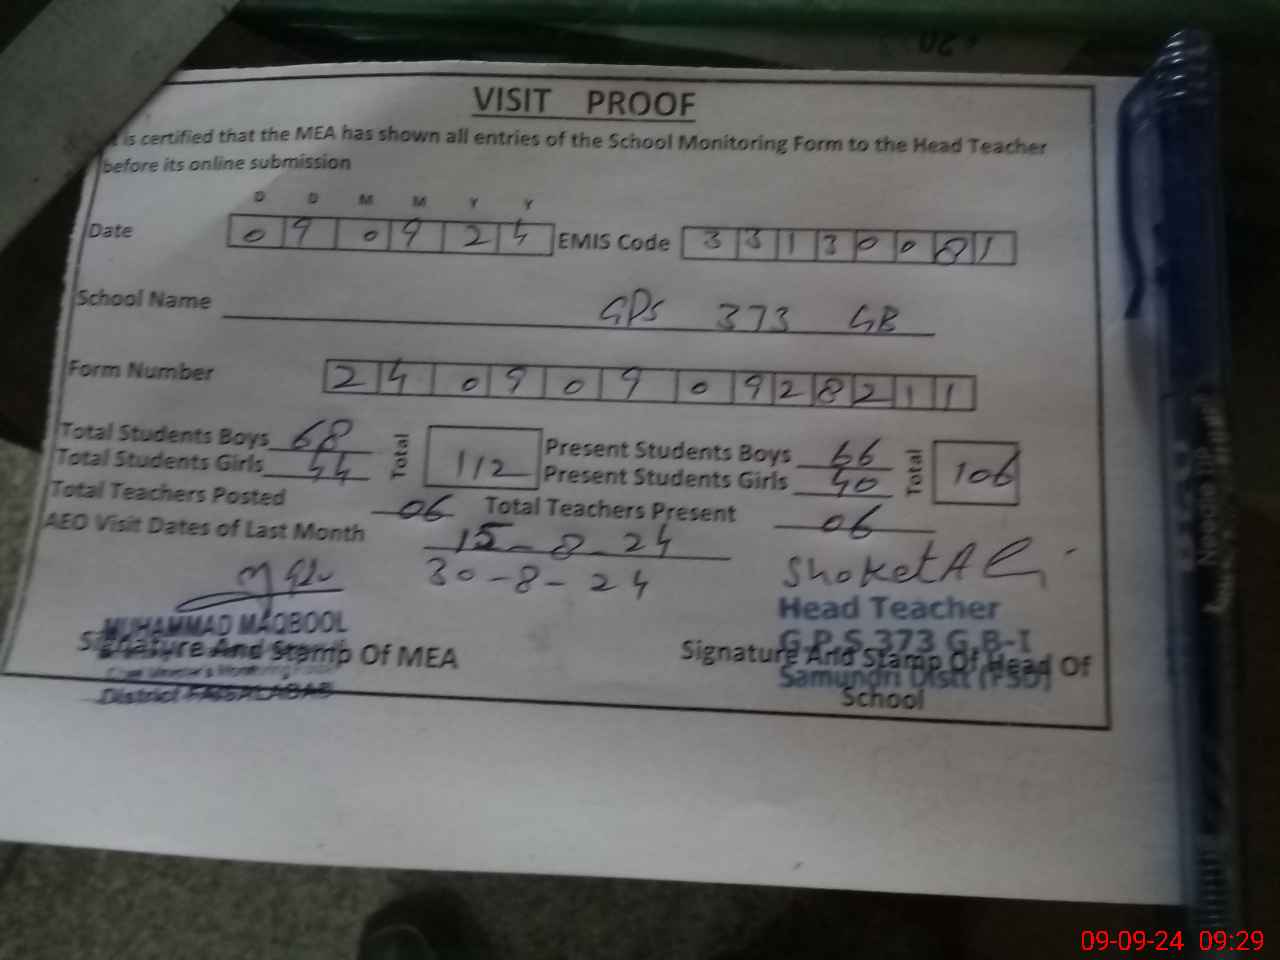 VISIT PROOF
t is certified that the MEA has shown all entries of the School Monitoring Form to the Head Teacher
before its online submission
D D M M Y Y
Date 0 9 0 9 2 4 EMIS Code 3 3 1 3 0 0 8 1
School Name GPS 373 GB
Form Number 2 4 0 9 0 9 0 9 2 8 2 1 1
Total Students Boys 68 Total 112 Present Students Boys 66 Total 106
Total Students Girls 44 Present Students Girls 40
Total Teachers Posted 06 Total Teachers Present 06
AEO Visit Dates of Last Month 15-8-24
30-8-24
Shoket Ali
MUHAMMAD MAQBOOL
Head Teacher
G.P.S 373 G.B-I
Signature And Stamp Of MEA
Signature And Stamp Of Head Of
Samundri Distt (FSD)
School
District FAISALABAD
Needle
09-09-24 09:29